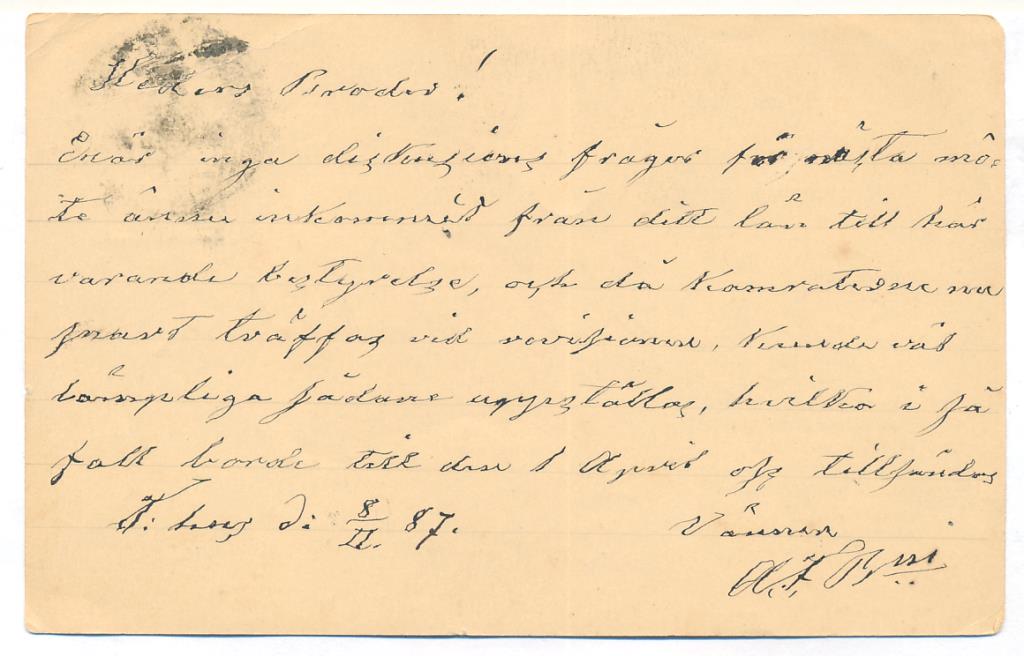 Heders Broder!
Enär inga diskusions frågor för nästa mö-
te ännu inkommit från ditt län till här
varande bestyrelse, och då kamraterne nu
snart träffas vid revisionen, kunde väl
lämpliga sådane uppställas, hvilka i så
fall borde till den 1 April oss tillsändas
T: hus d: 8/II. 87. Vännen